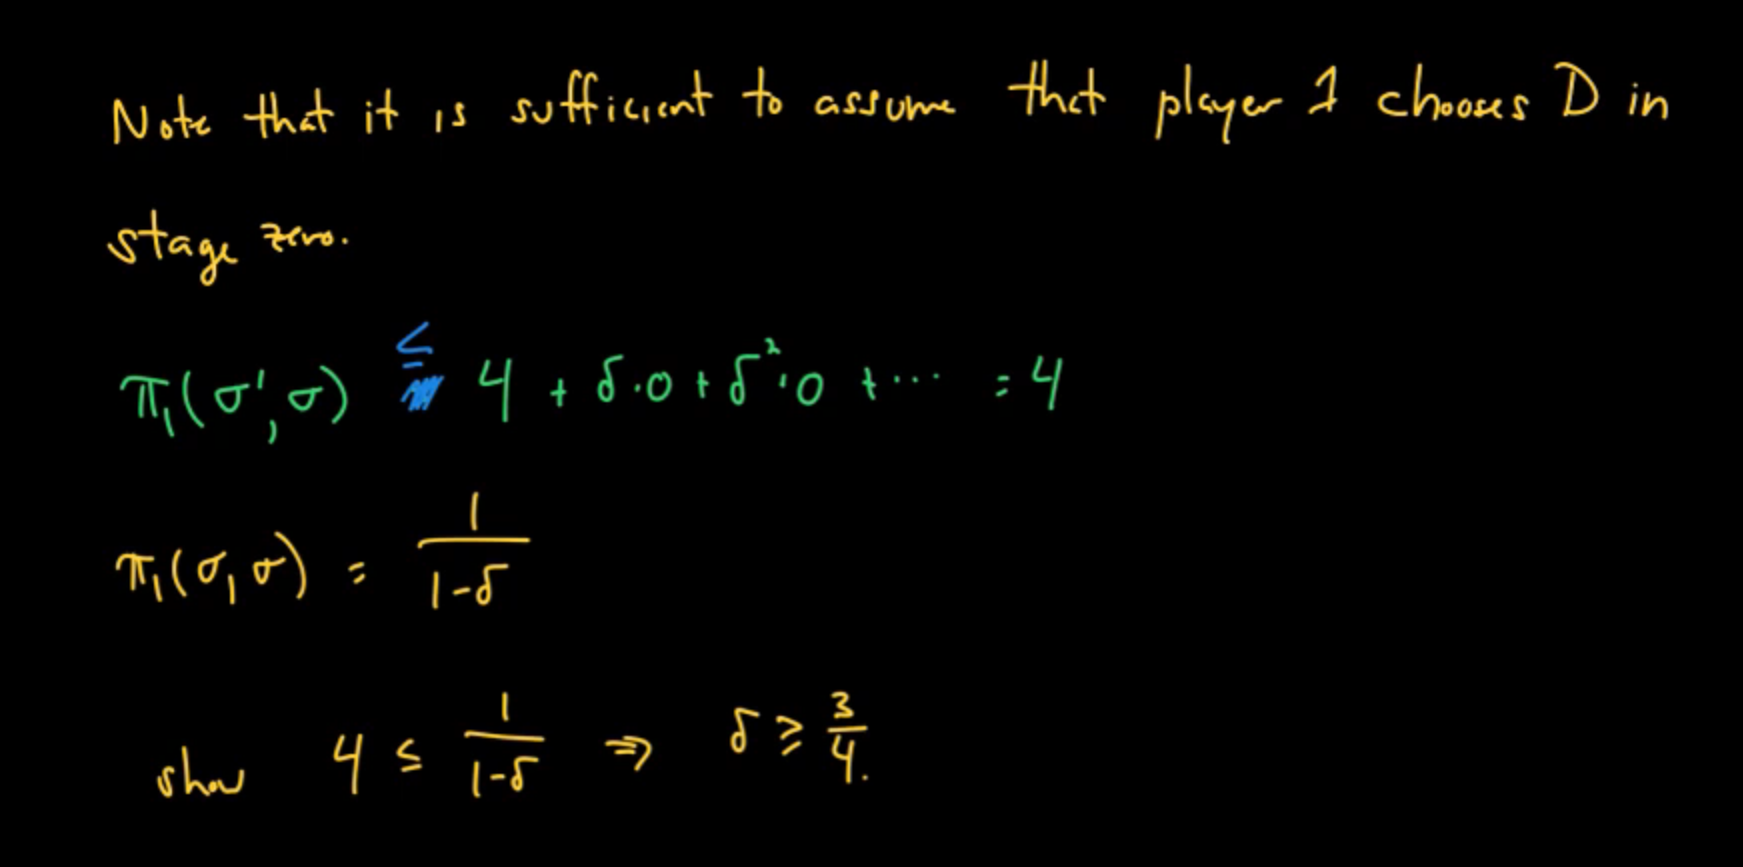 Note that it is sufficient to assume that player 1 chooses D in
stage zero.
π₁(σ', σ) ≤ 4 + δ·0 + δ²·0 + ··· = 4
π₁(σ, σ) = 1/(1-δ)
show 4 ≤ 1/(1-δ) ⇒ δ ≥ 3/4.